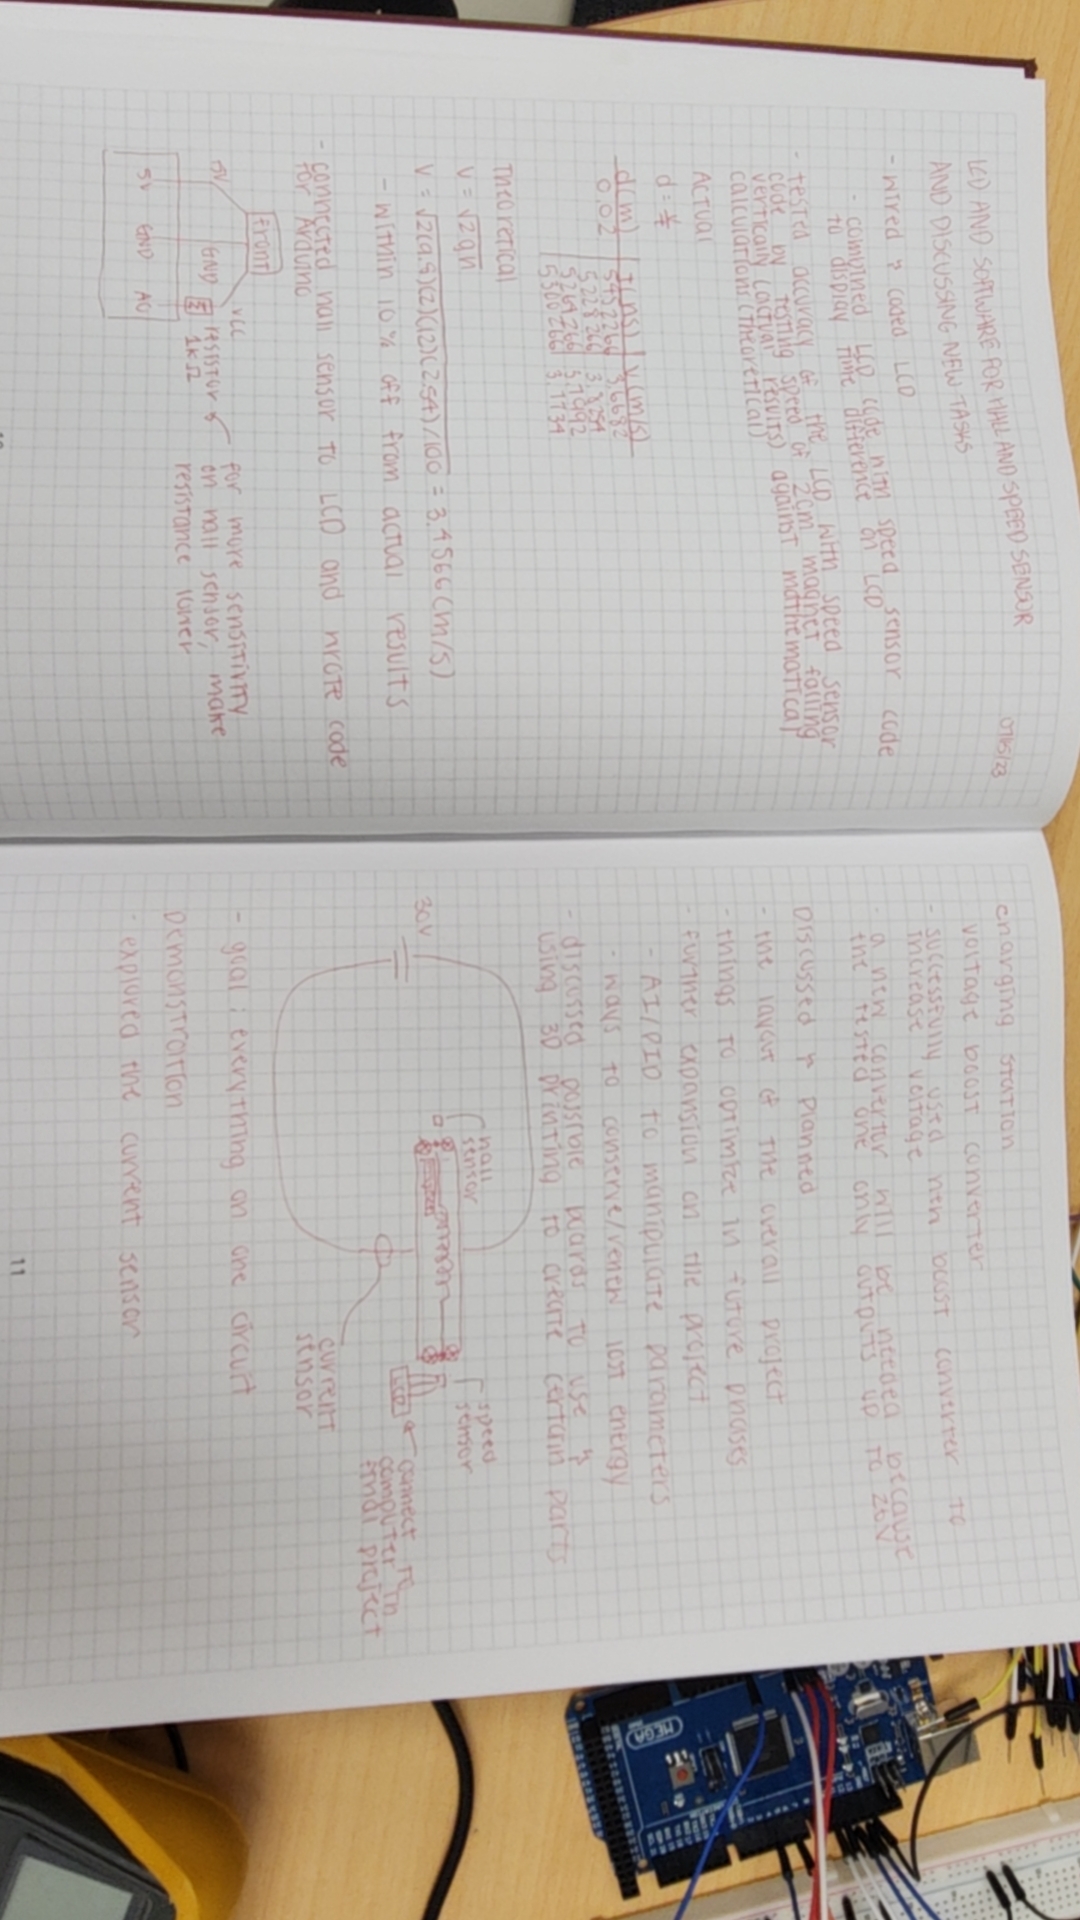 LCD AND SOFTWARE FOR HALL AND SPEED SENSOR
07/15/23
AND DISCUSSING NEW TASKS
- wired & coded LCD
- combined LCD code with speed sensor code
to display time difference on LCD
- tested accuracy of the LCD with speed sensor
code by testing speed of 2cm magnet falling
vertically (actual results) against mathematical
calculations (theoretical)
Actual
d = v/t
d(m) | t(ns) | v(m/s)
0.02 | 5452266 | 3.6682
5228266 | 3.8254
5264266 | 3.7992
5300266 | 3.7734
Theoretical
v = √2gh
v = √2(9.8)(2)(12)(2.54)/100 = 3.4566 (m/s)
- within 10% off from actual results
- connected hall sensor to LCD and wrote code
for Arduino
front
5V
GND
VCC
resistor
1kΩ
for more sensitivity
on hall sensor, make
resistance lower
5V GND A0
charging station
voltage boost converter
- successfully used new boost converter to
increase voltage
- a new convertor will be needed because
the tested one only outputs up to 26V
Discussed & Planned
- the layout of the overall project
- things to optimize in future phases
- further expansion on the project
- AI/PID to manipulate parameters
- ways to conserve/renew lost energy
- discussed possible boards to use &
using 3D printing to create certain parts
hall
sensor
speed
sensor
30V
LCD
connect to
computer in
final project
current
sensor
- goal: everything on one circuit
Demonstration
- explored the current sensor
11
MEGA